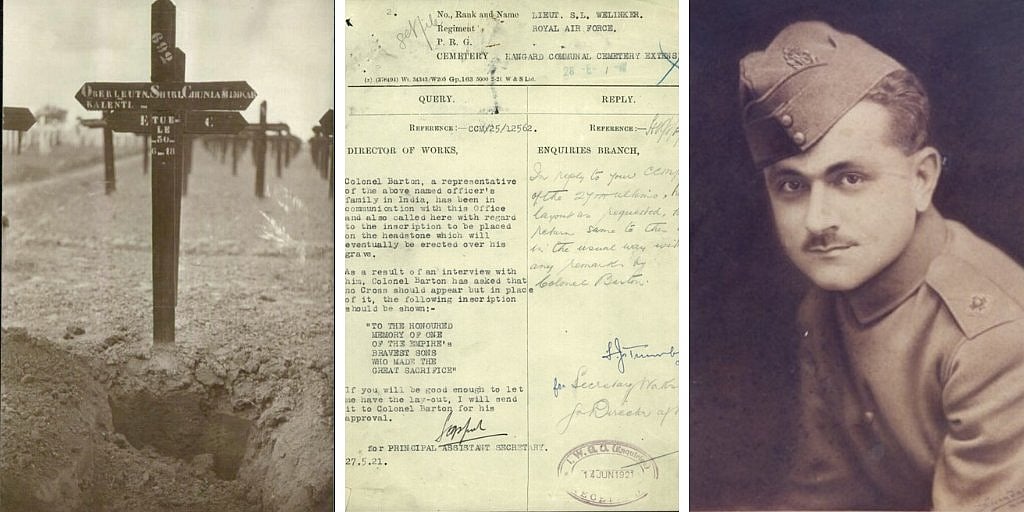 692
OBERLEUTN. SHIRI CHUNIAWINKAR
KALENTL -
ETUE- C
LE
-30-
6-18
2.
No., Rank and Name LIEUT. S.L. WELINKER.
Regiment ROYAL AIR FORCE.
P. R. G.
CEMETERY HANGARD COMMUNAL CEMETERY EXTENS
QUERY. REPLY.
REFERENCE:—CCM/25/12562. REFERENCE:—
DIRECTOR OF WORKS, ENQUIRIES BRANCH,
Colonel Barton, a representative
of the above named officer's
family in India, has been in
communication with this Office
and also called here with regard
to the inscription to be placed
on the headstone which will
eventually be erected over his
grave.
As a result of an interview with
him, Colonel Barton has asked that
no Cross should appear but in place
of it, the following inscription
should be shown:-
"TO THE HONOURED
MEMORY OF ONE
OF THE EMPIRE's
BRAVEST SONS
WHO MADE THE
GREAT SACRIFICE"
If you will be good enough to let
me have the lay-out, I will send
it to Colonel Barton for his
approval.
for PRINCIPAL ASSISTANT SECRETARY.
27.5.21.
In reply to your
of the 27th ultimo,
layout as requested,
return same to this
in the usual way with
any remarks by
Colonel Barton.
for Secretary
for Director of
I.W.G.C. (Enquiries)
14 JUN 1921